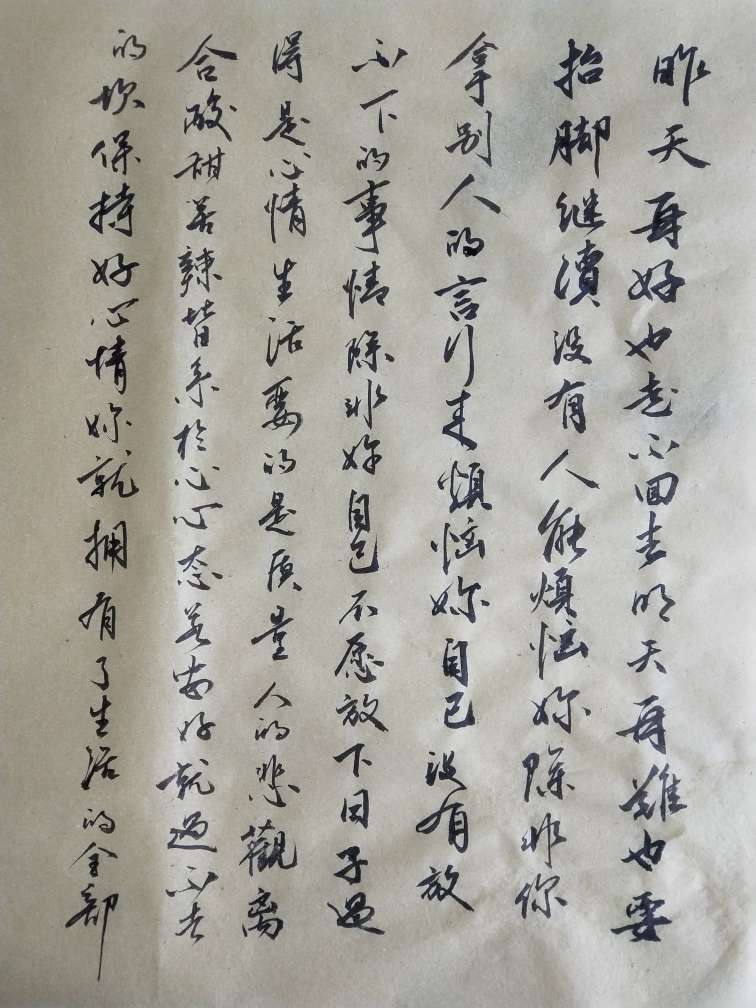 昨天再好也走不回去明天再難也要
抬脚继續没有人能煩惱妳除非你
拿别人的言行来煩惱妳自己没有放
不下的事情除非妳自己不愿放下日子過
得是心情生活要的是质量人的悲觀离
合酸甜苦辣皆系於心心态若安好就過不去
的坎保持好心情妳就拥有了生活的全部